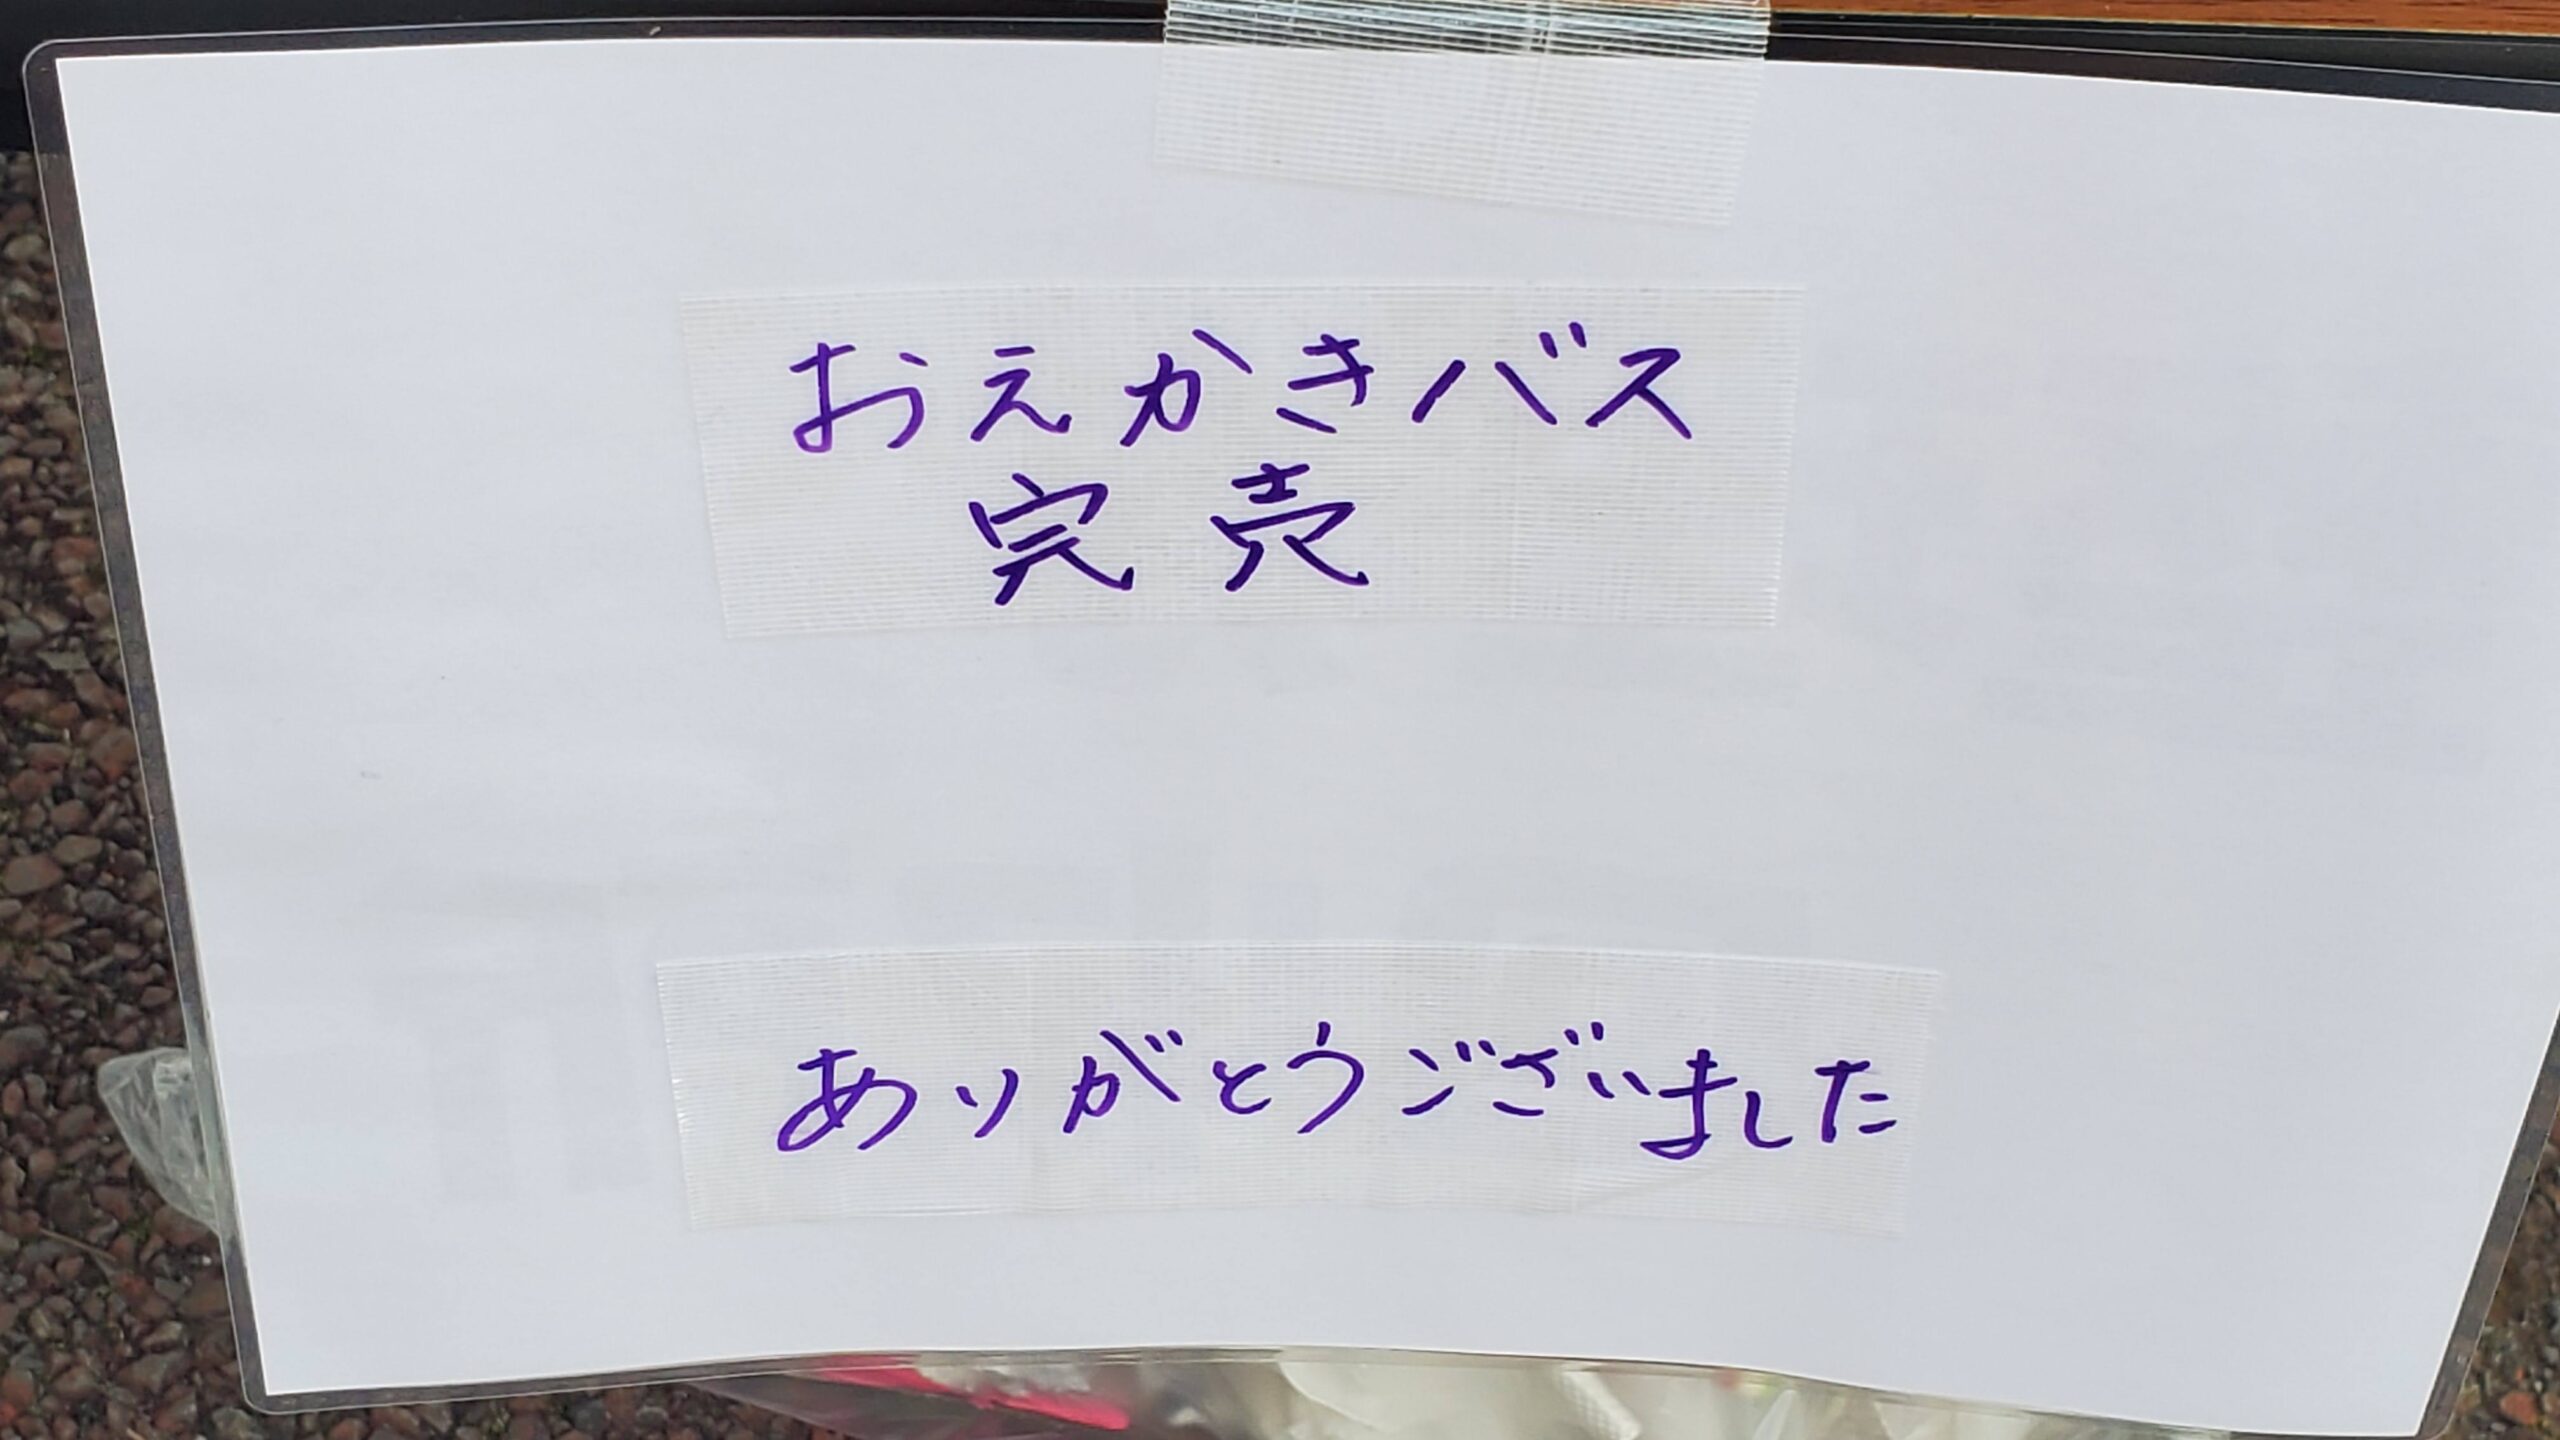 おえかきバス
完売
ありがとうございました